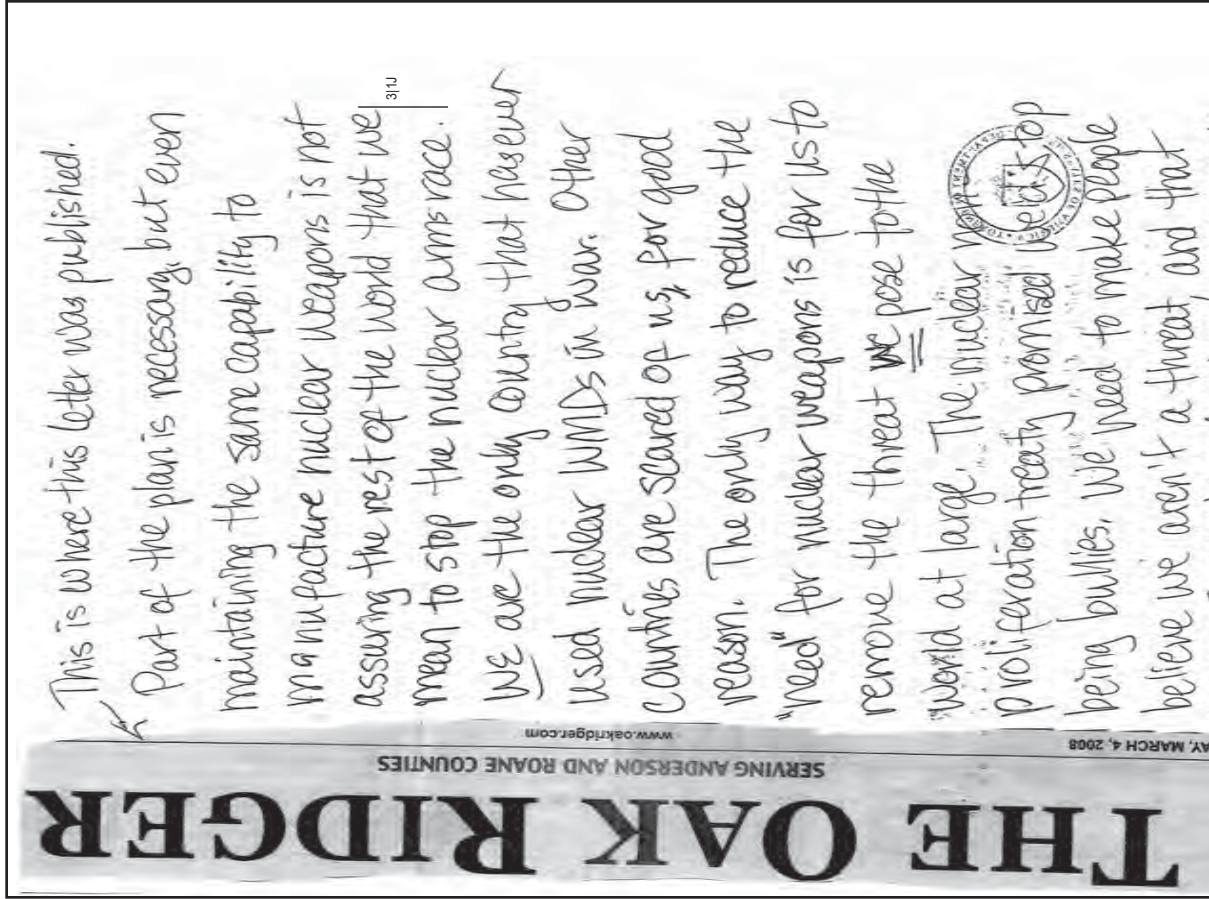 This is where this leter was published.
Part of the plan is necessary, but even
maintaining the same capability to
manufacture nuclear weapons is not
assuring the rest of the world that we
mean to stop the nuclear arms race.
WE are the only country that has ever
used nuclear WMDs in war. Other
countries are scared of us, for good
reason. The only way to reduce the
"need" for nuclear weapons is for us to
remove the threat we pose to the
world at large. The nuclear
proliferation treaty promised we'd stop
being bullies. We need to make people
believe we aren't a threat, and that
3|1J
THE OAK RIDGER
SERVING ANDERSON AND ROANE COUNTIES
AY, MARCH 4, 2008
www.oakridger.com